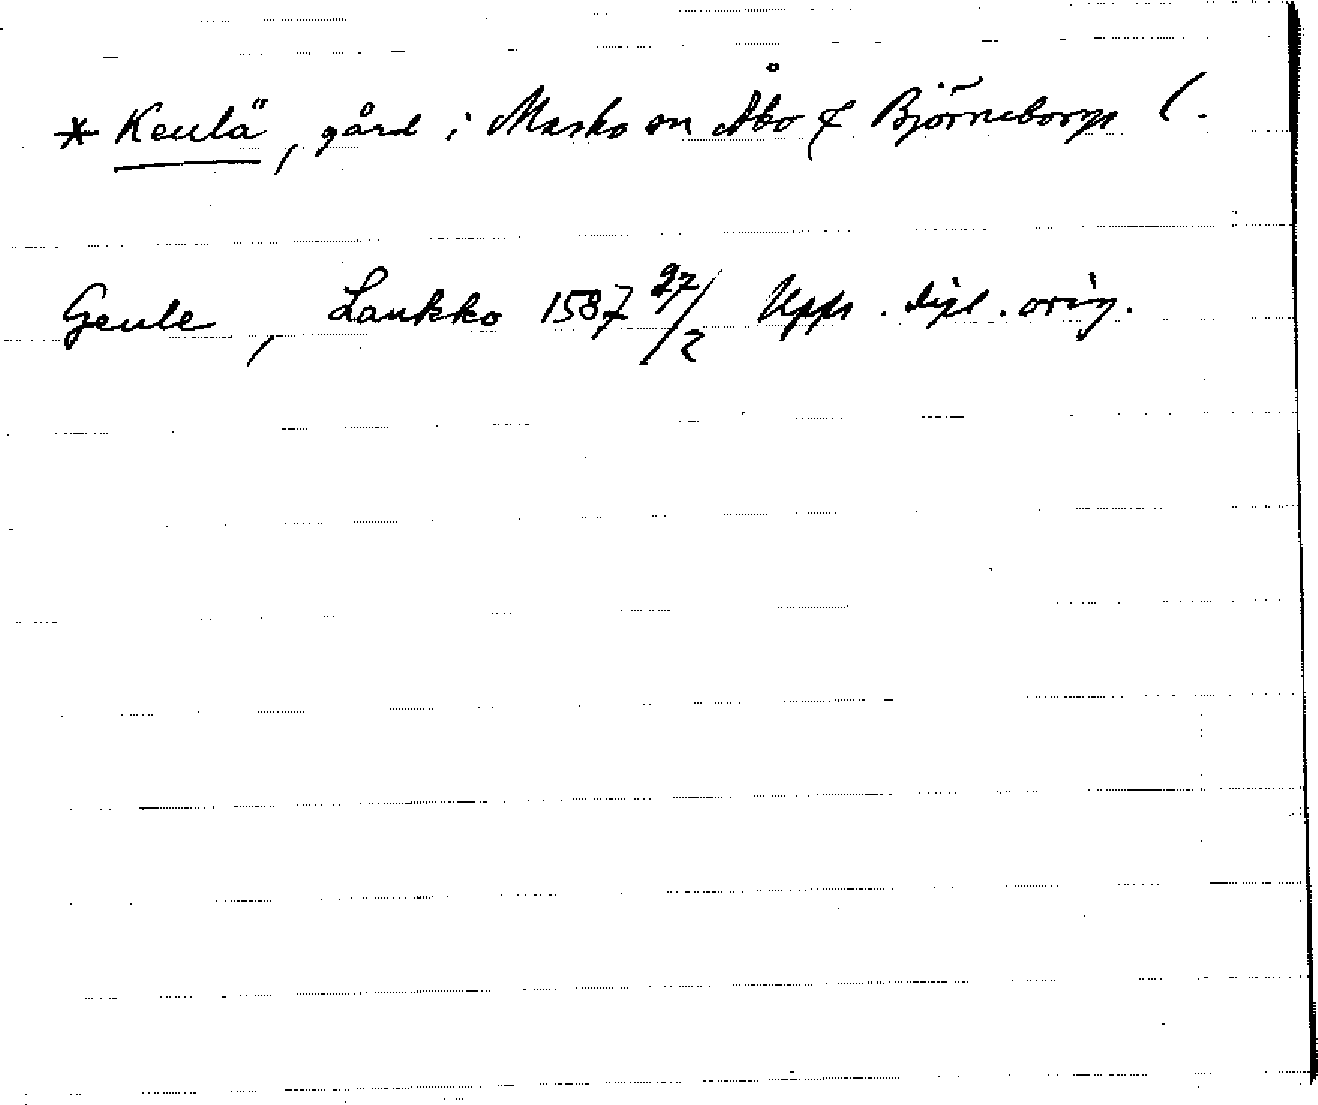 * Keulä, gård i Masko sn Åbo & Björneborgs l.
Geule, Laukko 1587 27/2 Upps. dipl. orig.